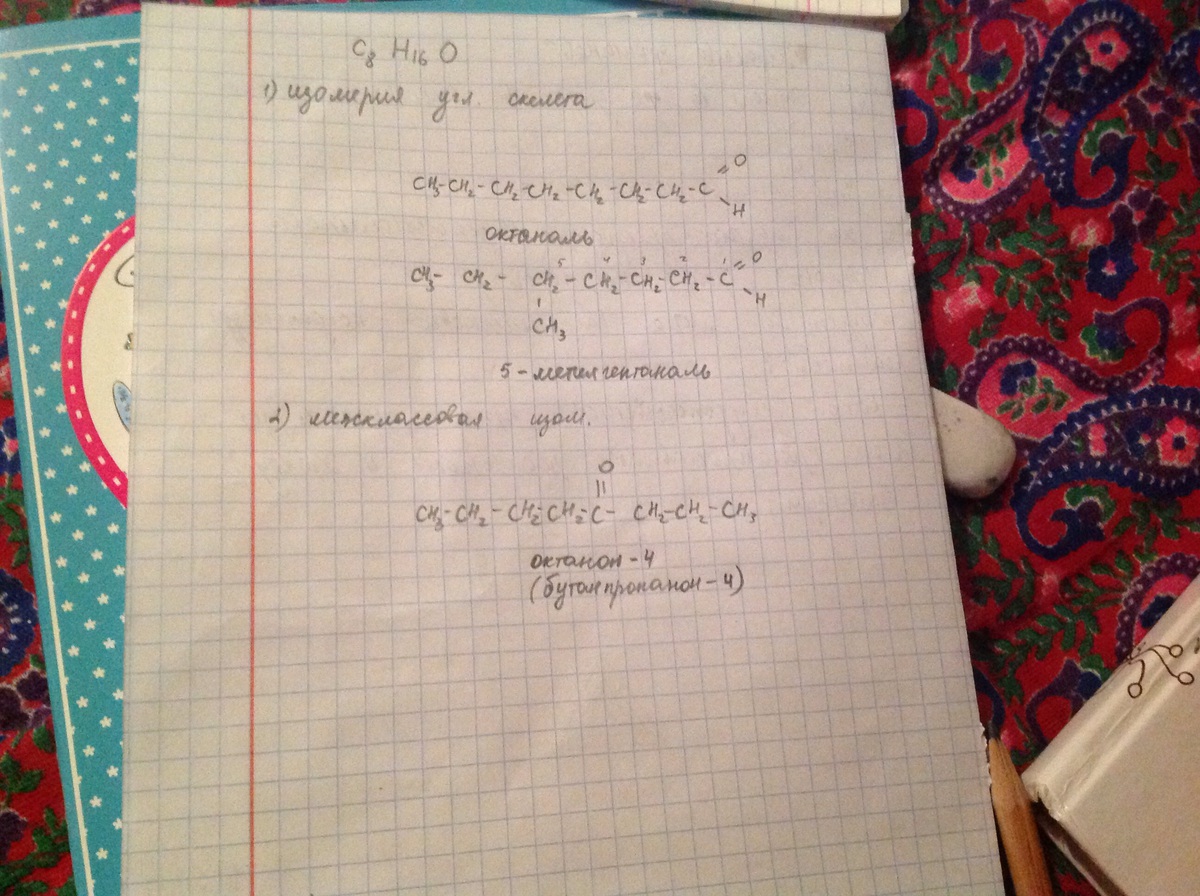 C₈ H₁₆ O
1) изомерия угл. скелета
O
CH₃-CH₂-CH₂-CH₂-CH₂-CH₂-CH₂-C
H
октаналь
5 4 3 2 1 O
CH₃- CH₂ - CH₂ - CH₂-CH₂-CH₂-C
H
CH₃
5-метилгептаналь
2) межклассовая изом.
O
||
CH₃-CH₂-CH₂-CH₂-C- CH₂-CH₂-CH₃
октанон-4
(бутанпропанон-4)